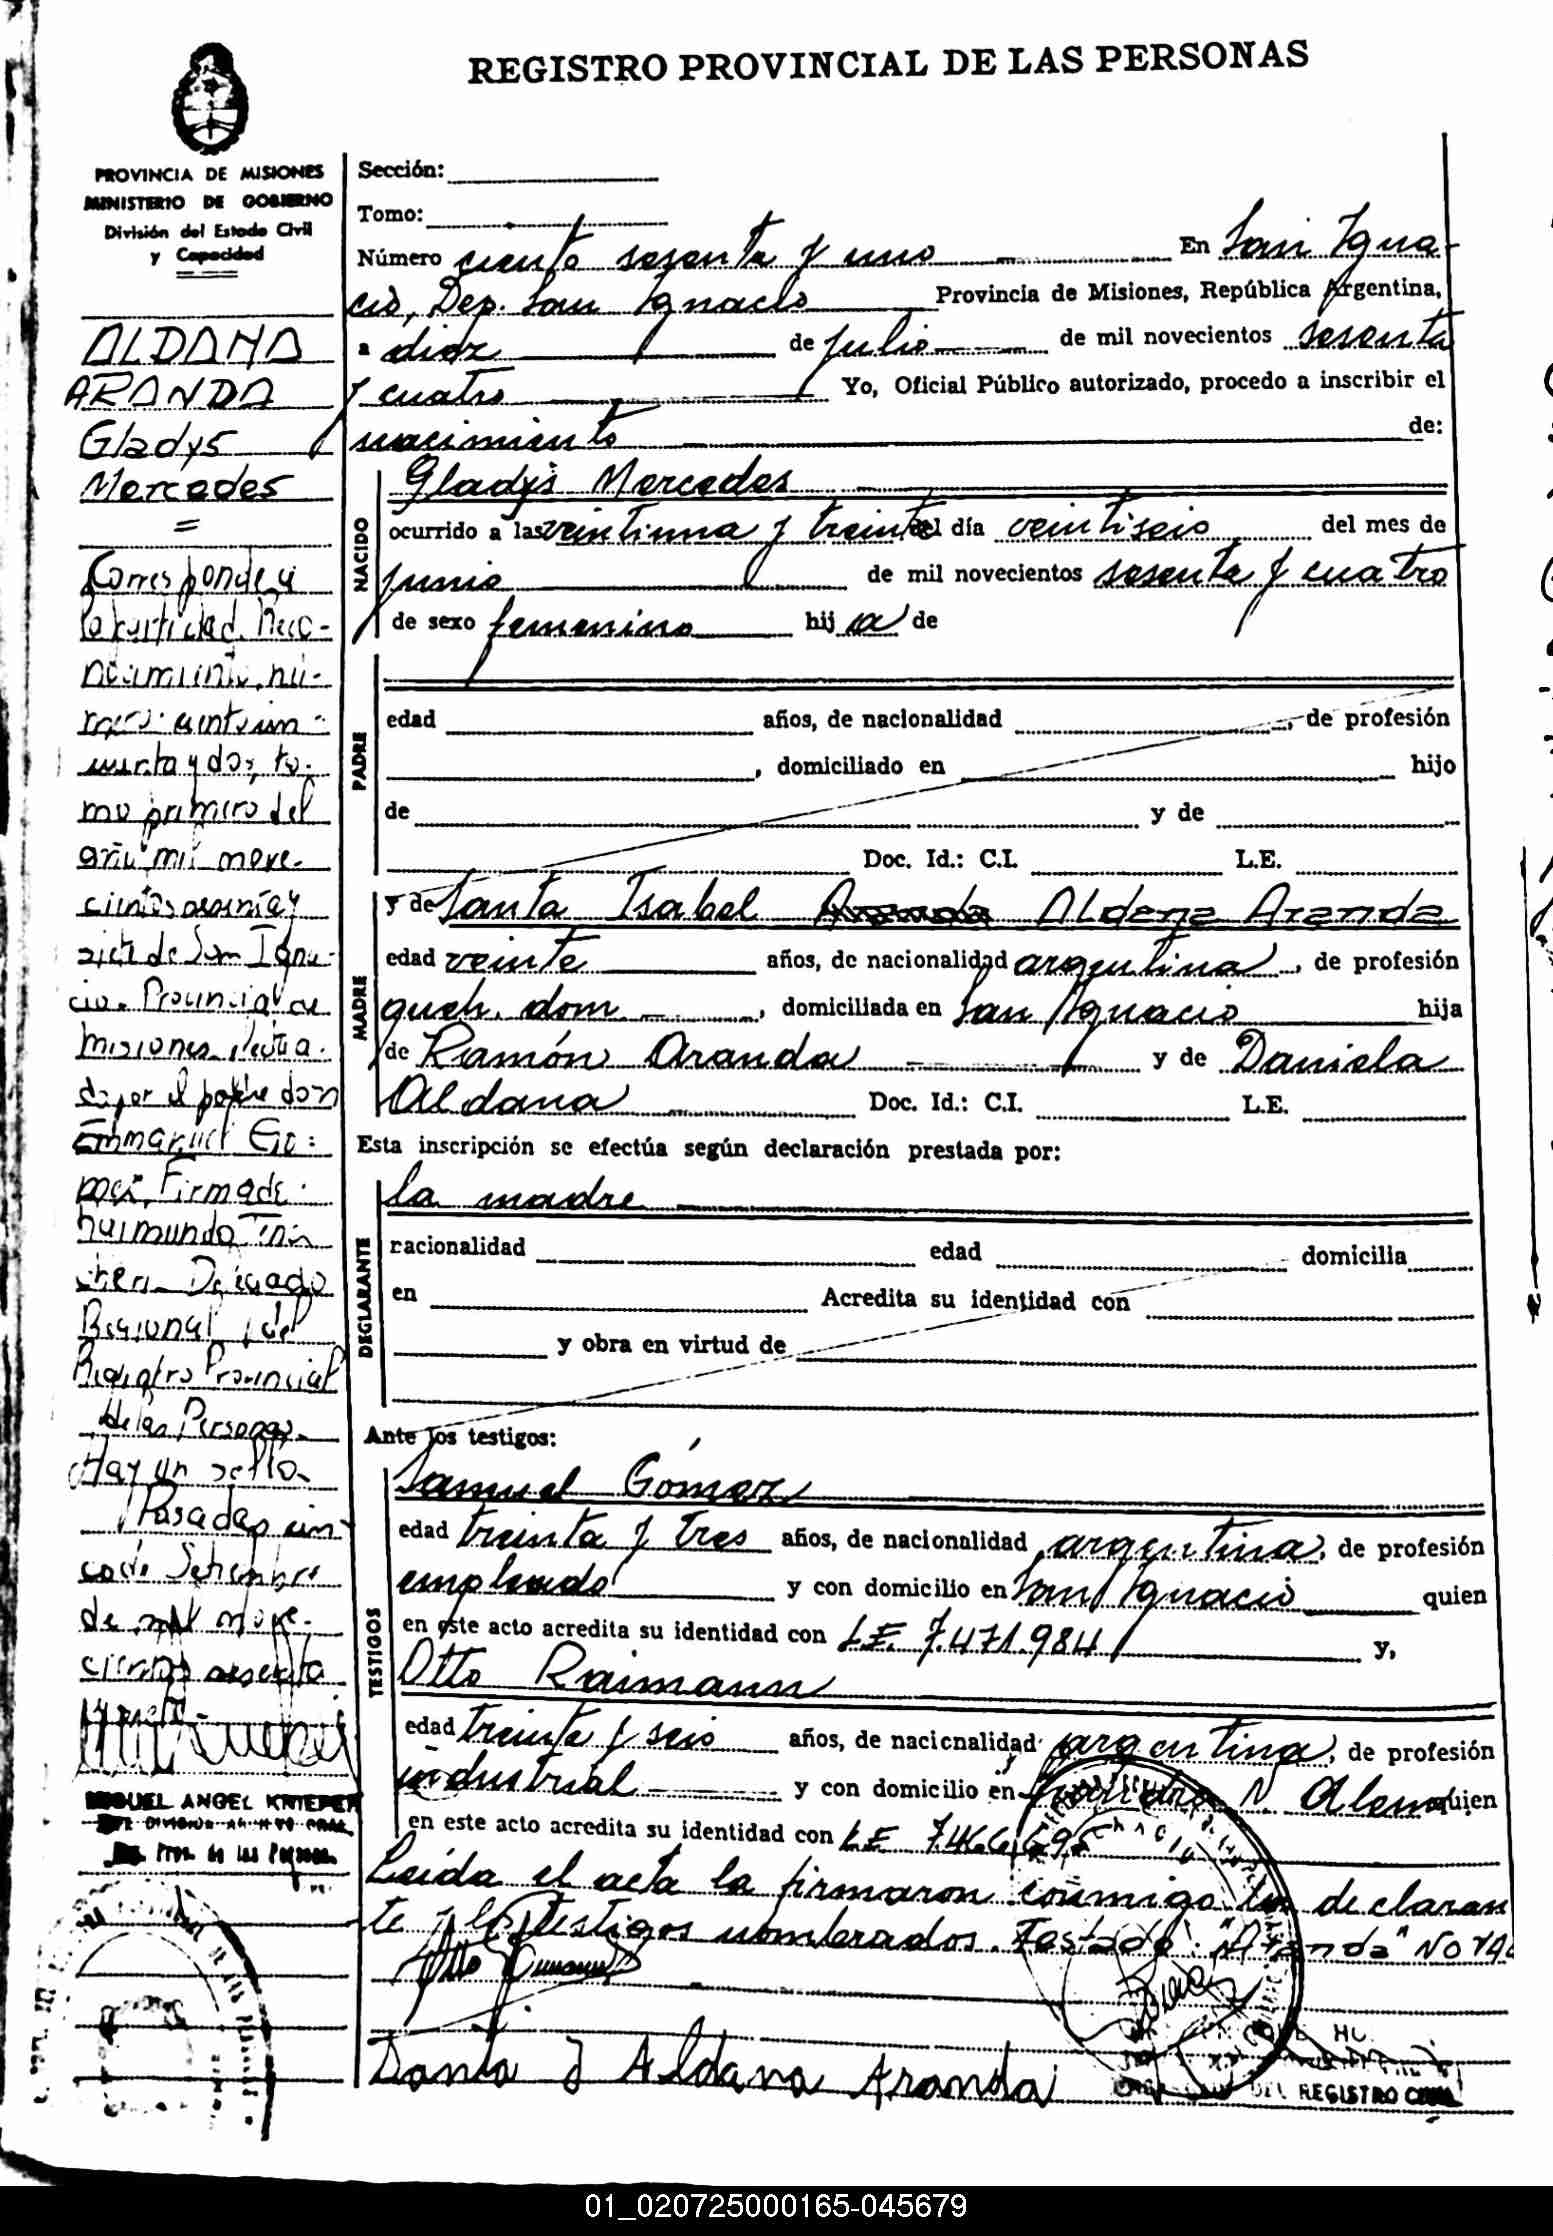 REGISTRO PROVINCIAL DE LAS PERSONAS
PROVINCIA DE MISIONES
MINISTERIO DE GOBIERNO
División del Estado Civil
y Capacidad
ALDANA
ARANDA
Gladys
Mercedes
=
Corresponde a
la partida d. Reco-
nocimiento, nú-
mero ciento cin-
cuenta y dos, to-
mo primero del
año mil nove-
cientos sesenta y
siete de San Igna-
cio. Provincia de
Misiones,
da por el padre don
Emmanuel Gó=
mez. Firmado:
Raimundo
Delegado
Regional del
Registro Provincial
de las Personas.
Hay un sello.
Posadas, cin-
co de Setiembre
de mil nove-
cientos sesenta
y siete.
MIGUEL ANGEL KRIEPER
JEFE DIVISION ARCHIVO GRAL.
Reg. Prov. de las Personas
Sección:
Tomo:
Número ciento sesenta y uno En San Igna-
cio, Dep. San Ignacio Provincia de Misiones, República Argentina,
a diez de julio de mil novecientos sesenta
y cuatro Yo, Oficial Público autorizado, procedo a inscribir el
nacimiento de:
NACIDO
Gladys Mercedes
ocurrido a las veintiuna y treinta del día veintiseis del mes de
junio de mil novecientos sesenta y cuatro
de sexo femenino hij a de
PADRE
edad años, de nacionalidad , de profesión
, domiciliado en hijo
de y de
Doc. Id.: C.I. L.E.
MADRE
y de Santa Isabel Aranda Aldana Aranda
edad veinte años, de nacionalidad argentina, de profesión
queh. dom. , domiciliada en San Ignacio hija
de Ramón Aranda y de Daniela
Aldana Doc. Id.: C.I. L.E.
Esta inscripción se efectúa según declaración prestada por:
DECLARANTE
la madre
nacionalidad edad domicilia
en Acredita su identidad con
y obra en virtud de
Ante los testigos:
TESTIGOS
Samuel Gómez
edad treinta y tres años, de nacionalidad argentina, de profesión
empleado y con domicilio en San Ignacio quien
en este acto acredita su identidad con L.E. 7.471.984 y,
Otto Raimann
edad treinta y seis años, de nacionalidad argentina, de profesión
industrial y con domicilio en N. Alem quien
en este acto acredita su identidad con L.E. 7.466.695
Leída el acta la firmaron conmigo la declaran
te y los testigos nombrados. Testado: "Aranda" No vale
Santa I Aldana Aranda
DEL REGISTRO CIVIL
01_020725000165-045679